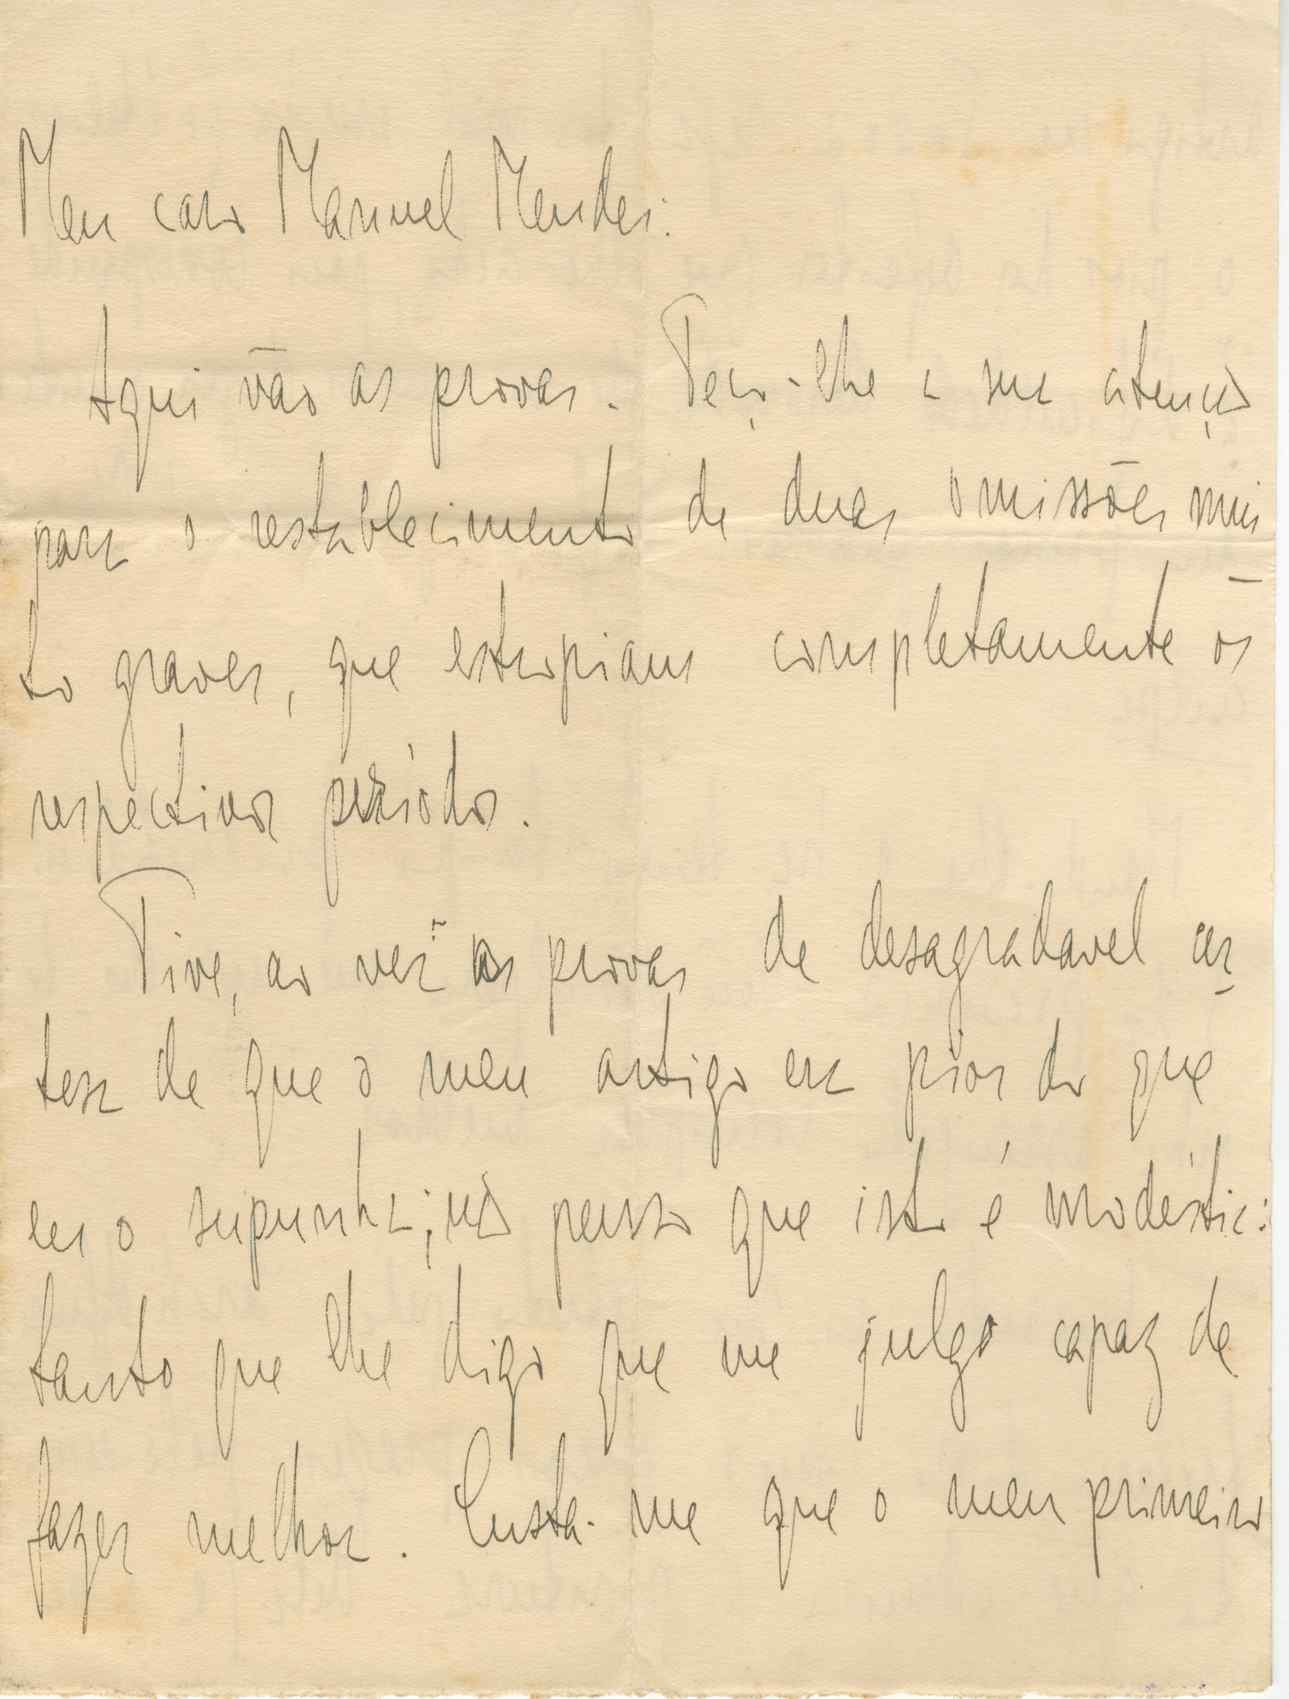 Meu caro Manuel Mendes:
Aqui vão as provas. Peço-lhe a sua atenção
para o restablecimento de duas omissões mui
to graves, que estropiam completamente os
respectivos periódos.
Tive, ao ver as provas de desagradavel cer
teza de que o meu artigo era pior do que
eu o supunha; não penso que isto é modéstia:
tanto que lhe digo que me julgo capaz de
fazer melhor. Custa-me que o meu primeiro